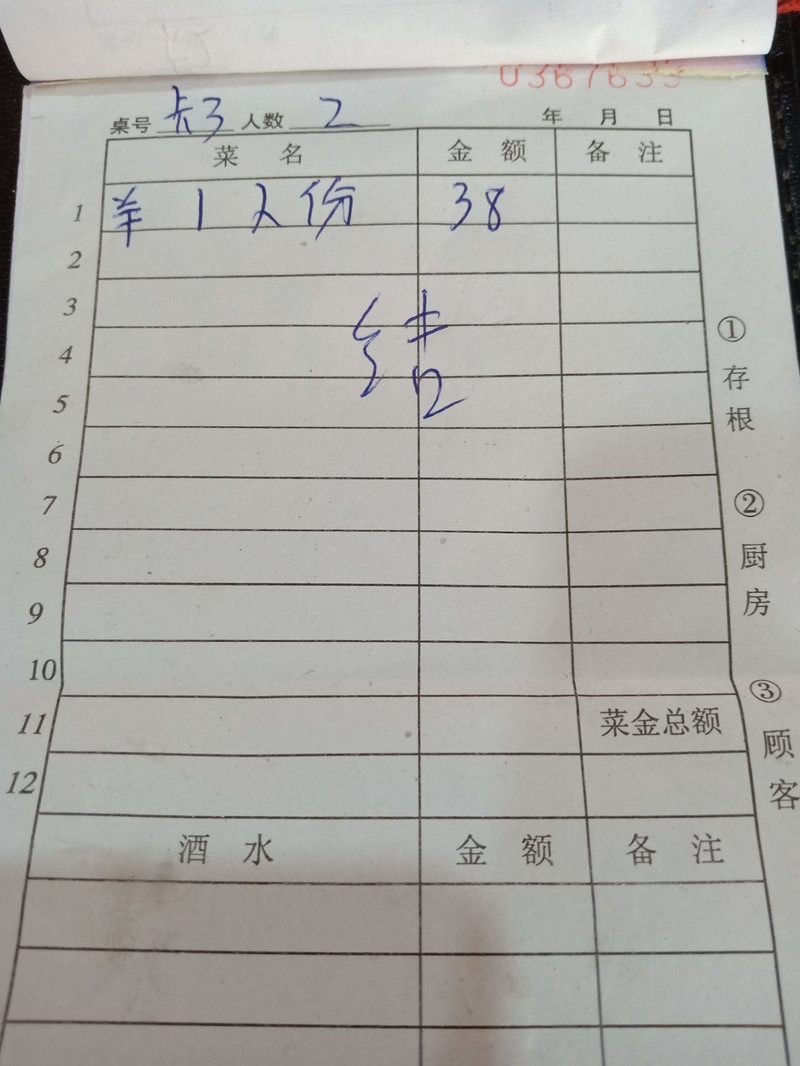 0367633
桌号 卡3 人数 2 年 月 日
菜 名 金 额 备 注
1 羊 1人份 38
2
3
结
4
5
6
7
8
9
10
11 菜金总额
12
酒 水 金 额 备 注
①存根
②厨房
③顾客